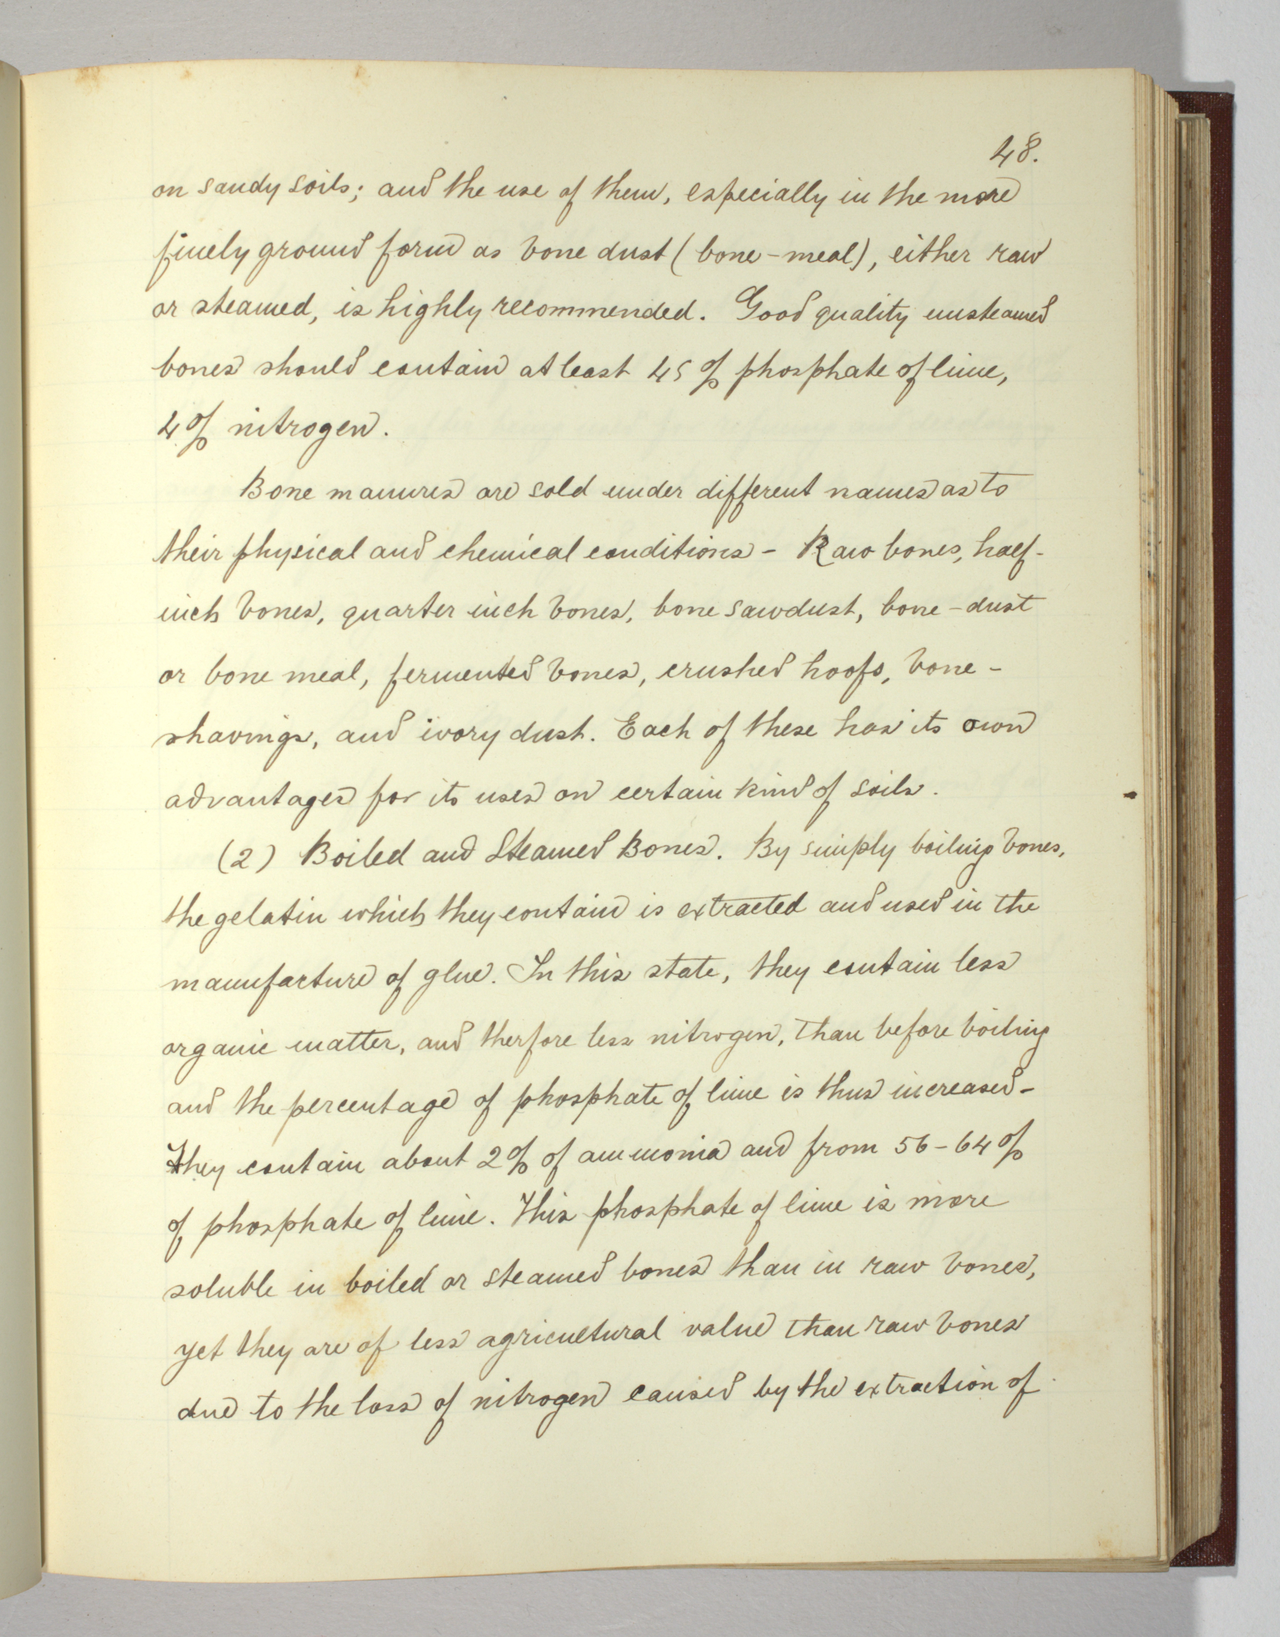 48.
on sandy soils; and the use of them, especially in the more
finely ground form as bone dust (bone-meal), either raw
or steamed, is highly recommended. Good quality unsteamed
bones should contain at least 45% phosphate of lime,
4% nitrogen.
Bone manures are sold under different names as to
their physical and chemical conditions - Raw bones, half-
inch bones, quarter inch bones, bone sawdust, bone-dust
or bone meal, fermented bones, crushed hoofs, bone-
shavings, and ivory dust. Each of these has its own
advantages for its uses on certain kind of soils.
(2) Boiled and Steamed Bones. By simply boiling bones,
the gelatin which they contain is extracted and used in the
manufacture of glue. In this state, they contain less
organic matter, and therfore less nitrogen, than before boiling
and the percentage of phosphate of lime is thus increased-
They contain about 2% of ammonia and from 56-64%
of phosphate of lime. This phosphate of lime is more
soluble in boiled or steamed bones than in raw bones,
yet they are of less agricultural value than raw bones
due to the loss of nitrogen caused by the extraction of